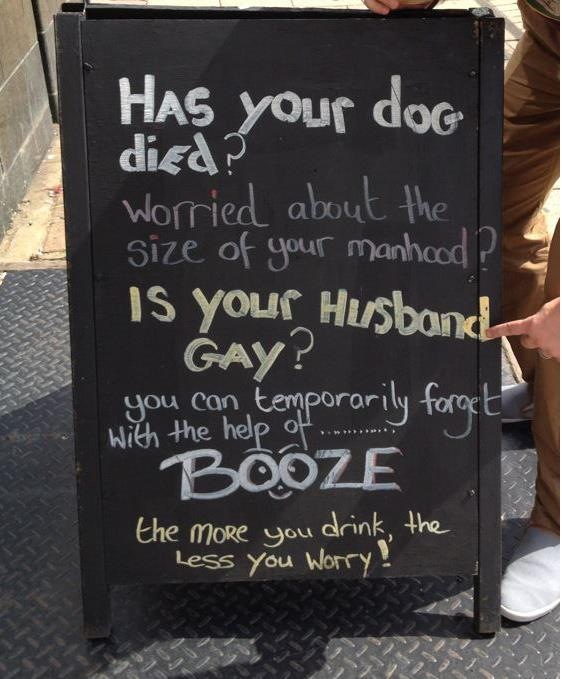 HAS your dog
died?
Worried about the
size of your manhood?
IS your Husband
GAY?
you can temporarily forget
With the help of ............
BOOZE
the MORE you drink, the
Less you Worry!